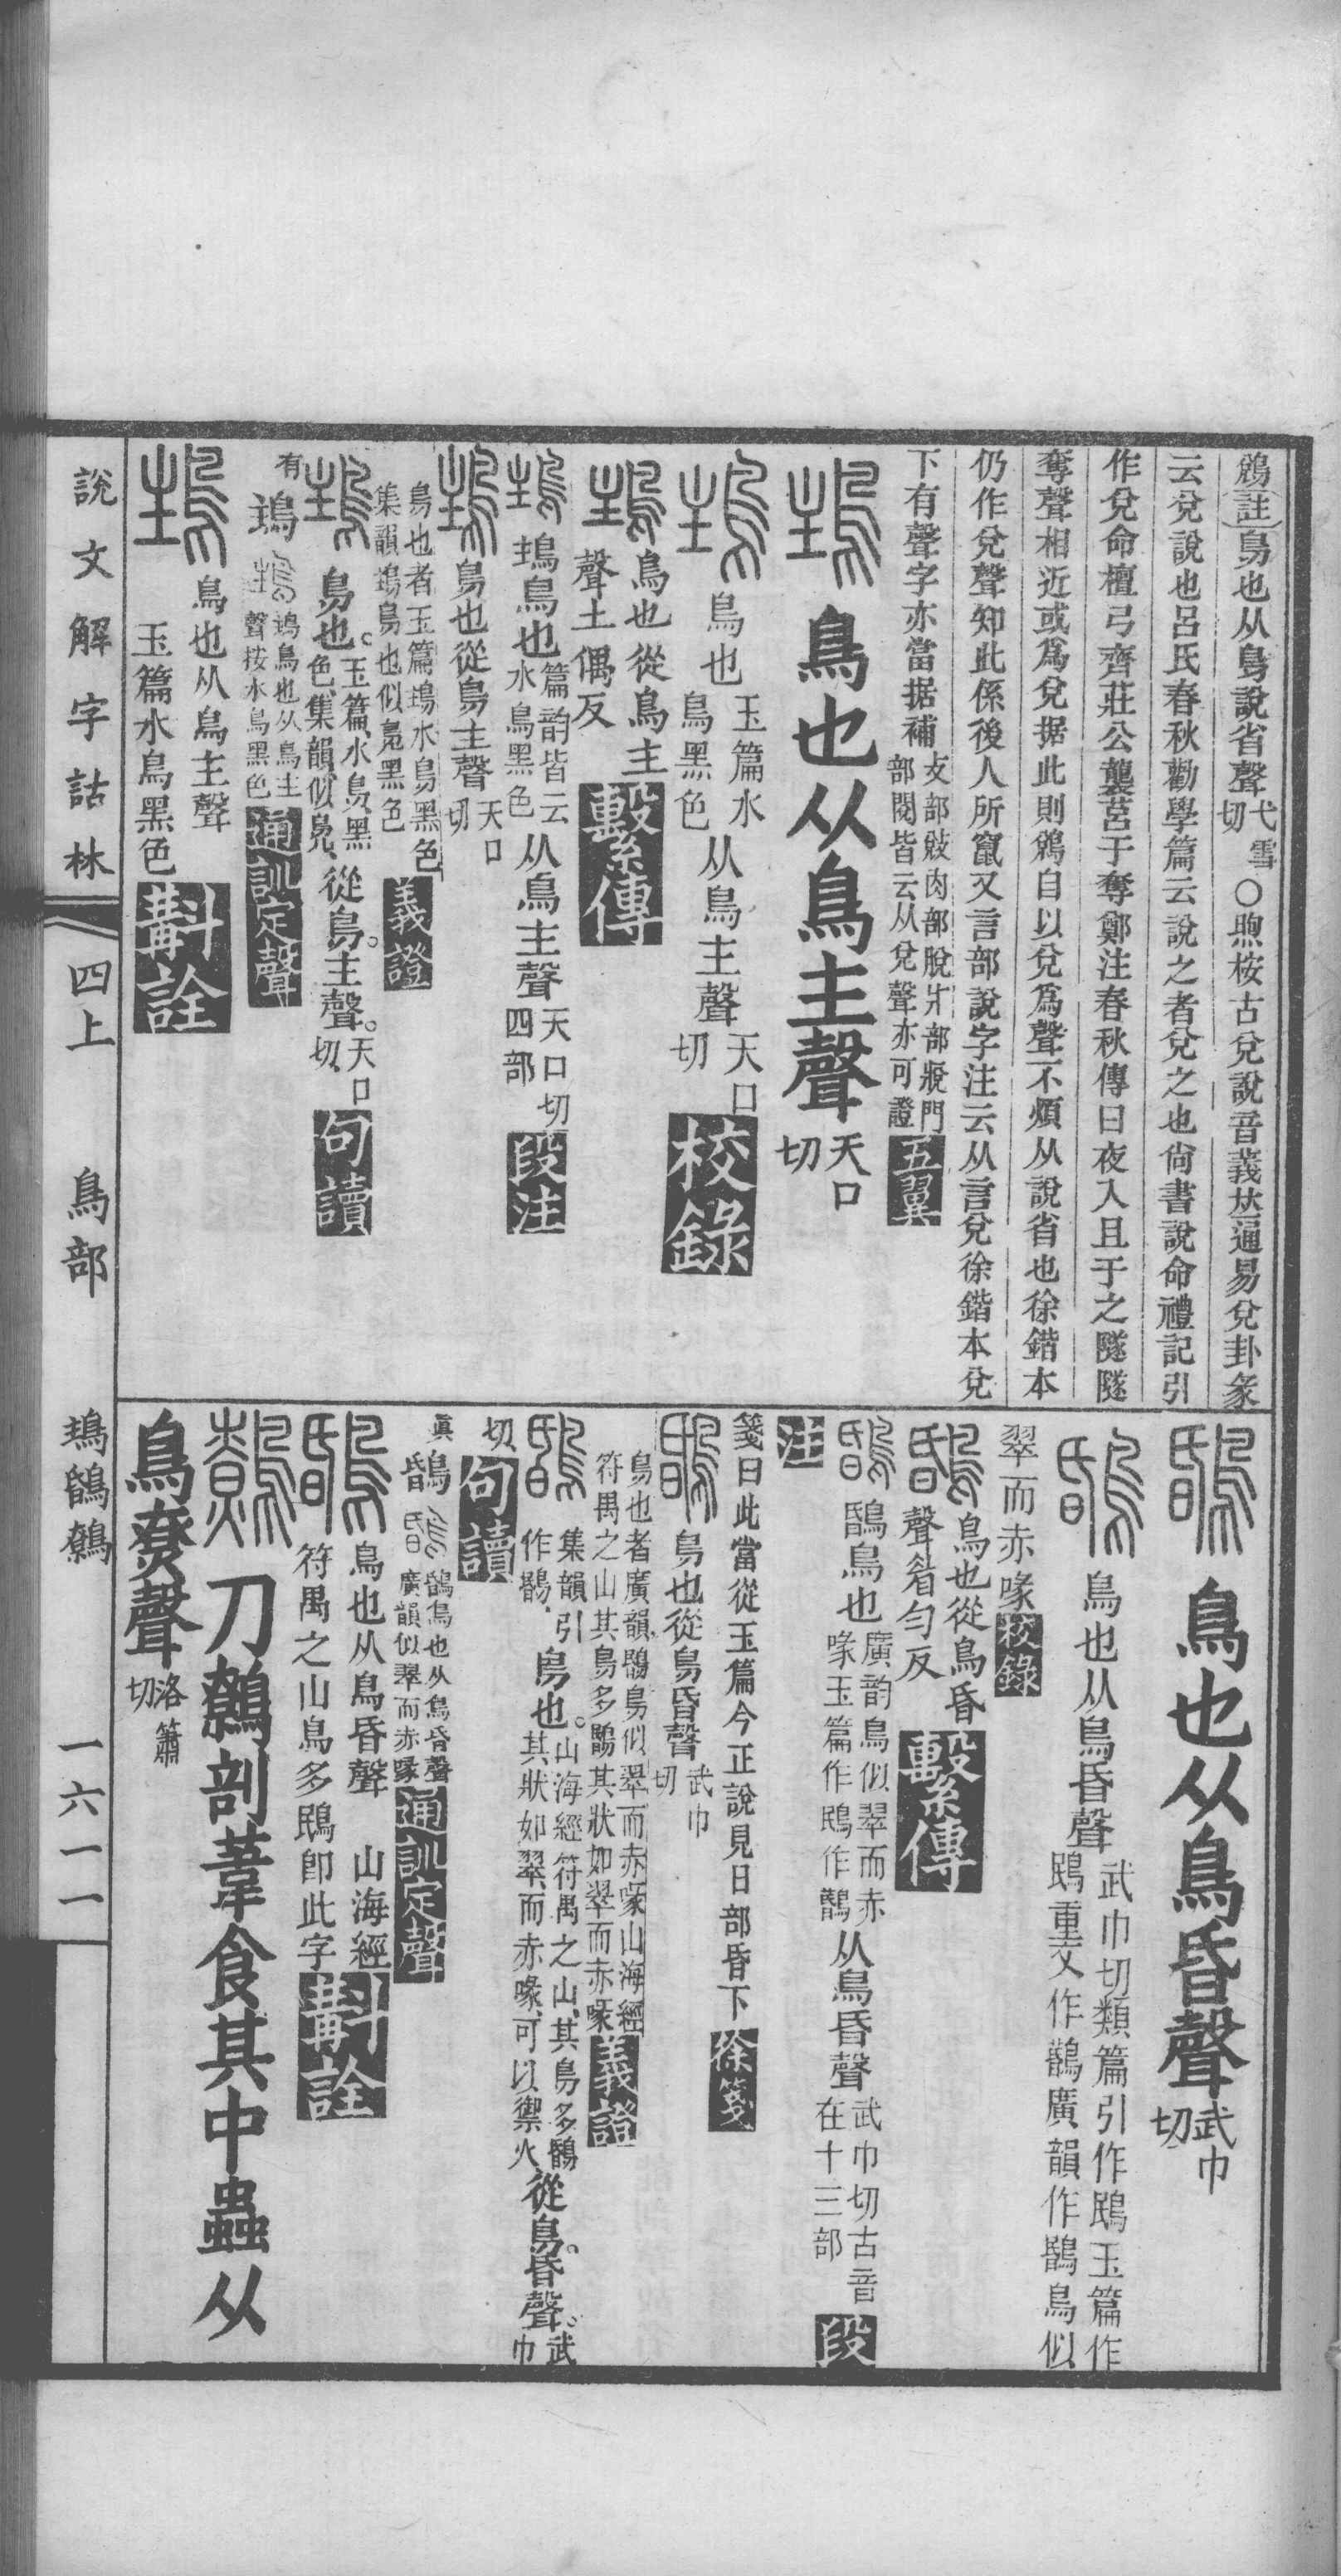 鴪註鳥也从鳥說省聲弋雪切○煦桉古兌說音義𠀤通易兌卦彖
云兌說也呂氏春秋勸學篇云說之者兌之也尙書說命禮記引
作兌命檀弓齊莊公襲莒于奪鄭注春秋傳曰夜入且于之隧隧
奪聲相近或爲兌据此則鴪自以兌爲聲不煩从說省也徐鍇本
仍作兌聲知此係後人所竄又言部說字注云从言兌徐鍇本兌
下有聲字亦當据補攴部敓肉部脫爿部䏁門部閱皆云从兌聲亦可證五翼
鳥也从鳥主聲天口切
鳥也玉篇水鳥黑色从鳥主聲天口切校錄
鳥也從鳥主聲土偶反繫傳
鴸鳥也篇韵皆云水鳥黑色从鳥主聲天口切四部段注
鳥也從鳥主聲天口切
鳥也者玉篇䳔水鳥黑色集韻䳔鳥也似鳧黑色義證
鳥也。玉篇、水鳥黑色、集韻、似鳧、從鳥。主聲。天口切、句讀
有䳔䳔鳥也从鳥主聲按水鳥黑色通訓定聲
鳥也从鳥主聲玉篇水鳥黑色斠詮
鳥也从鳥昏聲武巾切
鳥也从鳥昏聲武巾切類篇引作鴖玉篇作鴖重文作鶕廣韻作鶥鳥似
翠而赤喙校錄
鳥也從鳥昏聲眉勻反繫傳
鶥鳥也廣韵鳥似翠而赤喙玉篇作鴖作鶕从鳥昏聲武巾切古音在十三部段
注
箋曰此當從玉篇今正說見日部昏下徐箋
鳥也從鳥昏聲武巾切
鳥也者廣韻鶥鳥似翠而赤喙山海經符禺之山其鳥多鶥其狀如翠而赤喙義證
集韻引作鶥、鳥也。山海經、符禺之山、其鳥多鶥、其狀如翠、而赤喙、可以禦火、從鳥。昏聲。武巾
切句讀
眞鶥鶥鳥也从鳥昏聲廣韻似翠而赤喙通訓定聲
鳥也从鳥昏聲 山海經符禺之山鳥多鴖卽此字斠詮
刀鷯剖葦食其中蟲从
鳥尞聲洛簫切
說文解字詁林 四上 鳥部 䳔鶥鷯 一六一一